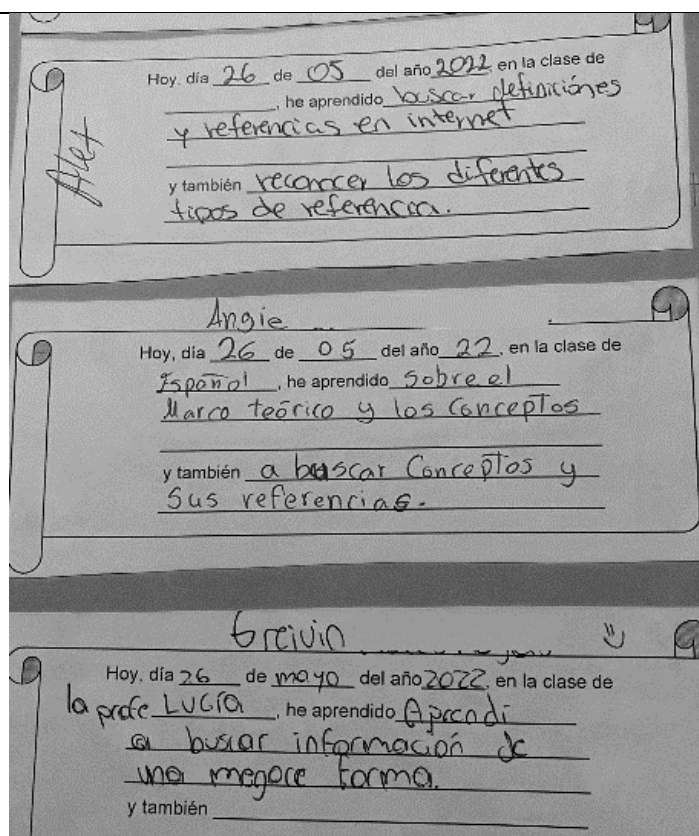 Alex
Hoy, día 26 de 05 del año 2022, en la clase de
, he aprendido buscar definiciónes
y referencias en internet
y también reconocer los diferentes
tipos de referencia.
Angie
Hoy, día 26 de 05 del año 22, en la clase de
Español, he aprendido Sobre el
Marco teórico y los Conceptos
y también a buscar Conceptos y
Sus referencias.
Greivin
Hoy, día 26 de mayo del año 2022, en la clase de
la profe LUCÍA, he aprendido Aprendi
a buscar información de
una megore forma.
y también